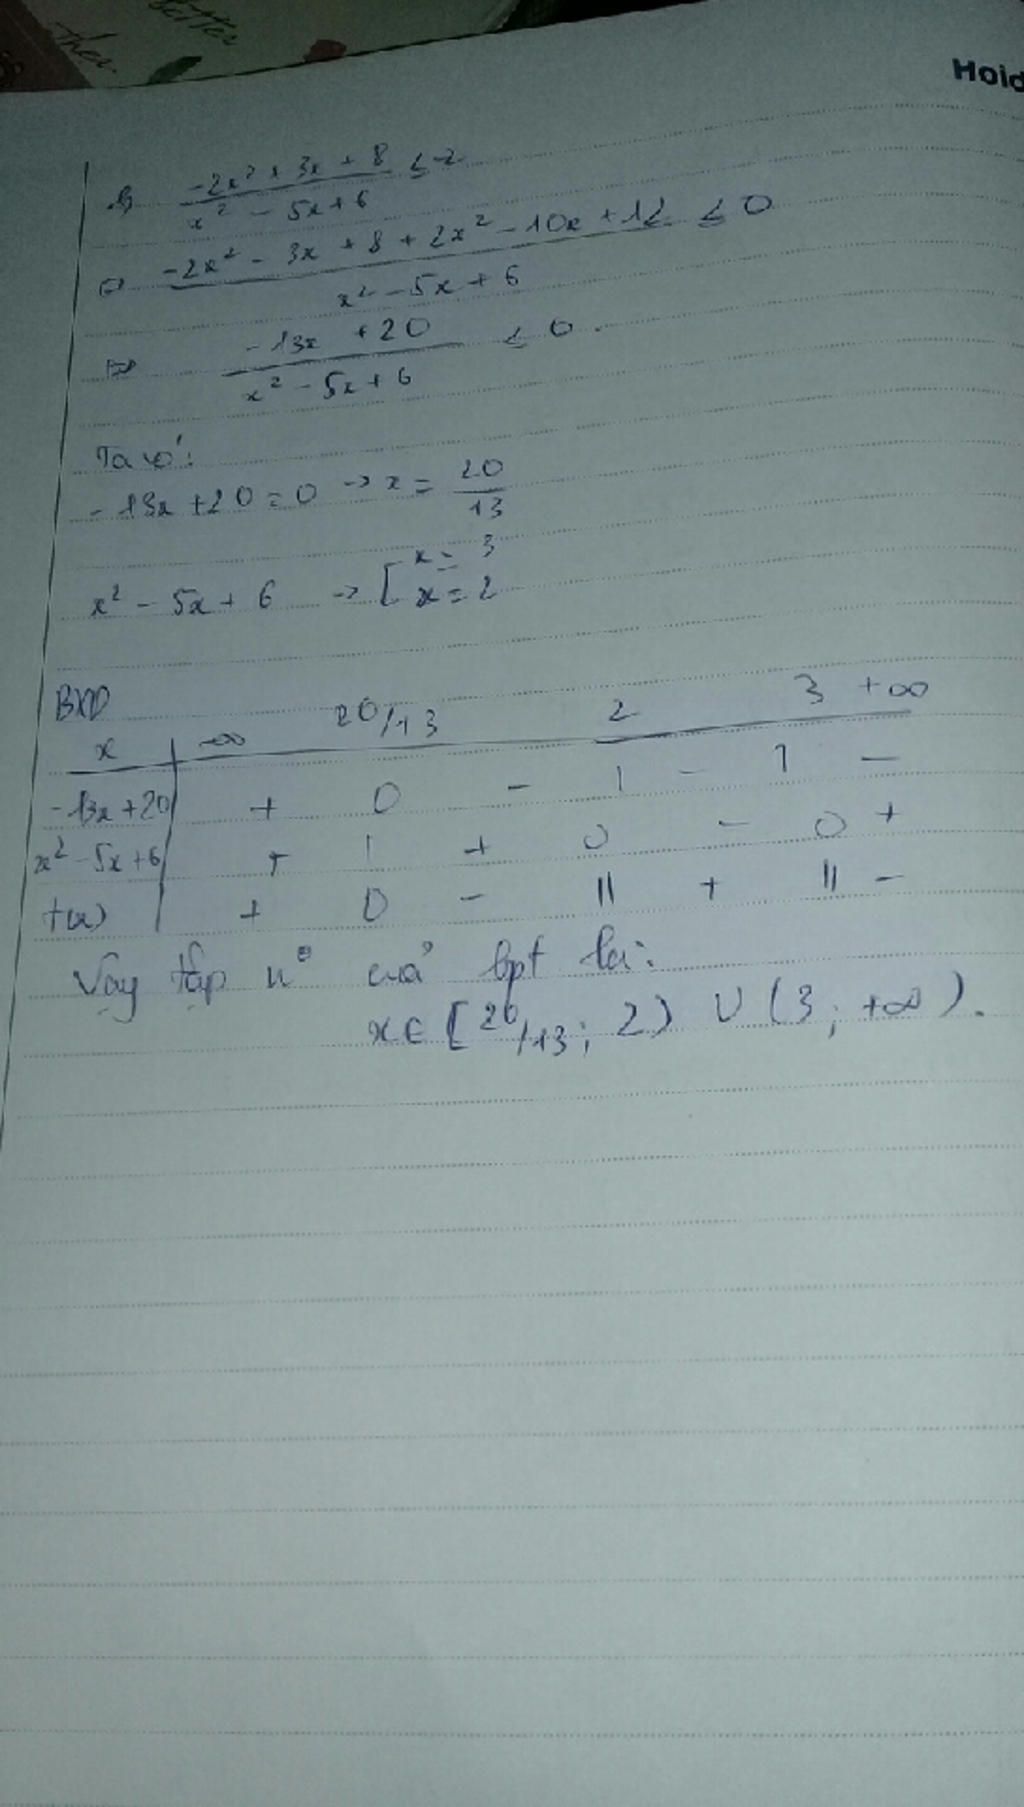 better
then
Hoid
-2x² + 3x + 8 / x² - 5x + 6 ≤ -2
⇔ -2x² - 3x + 8 + 2x² - 10x + 12 / x² - 5x + 6 ≤ 0
⇔ -13x + 20 / x² - 5x + 6 ≤ 0.
Ta có:
-13x + 20 = 0 → x = 20/13
x² - 5x + 6 → [ x = 3
x = 2
BXD
x -∞ 20/13 2 3 +∞
-13x + 20 + 0 - | - | -
x² - 5x + 6 + | + 0 - 0 +
f(x) + 0 - || + || -
Vậy tập n° của bpt là:
x ∈ [20/13; 2) ∪ (3; +∞).